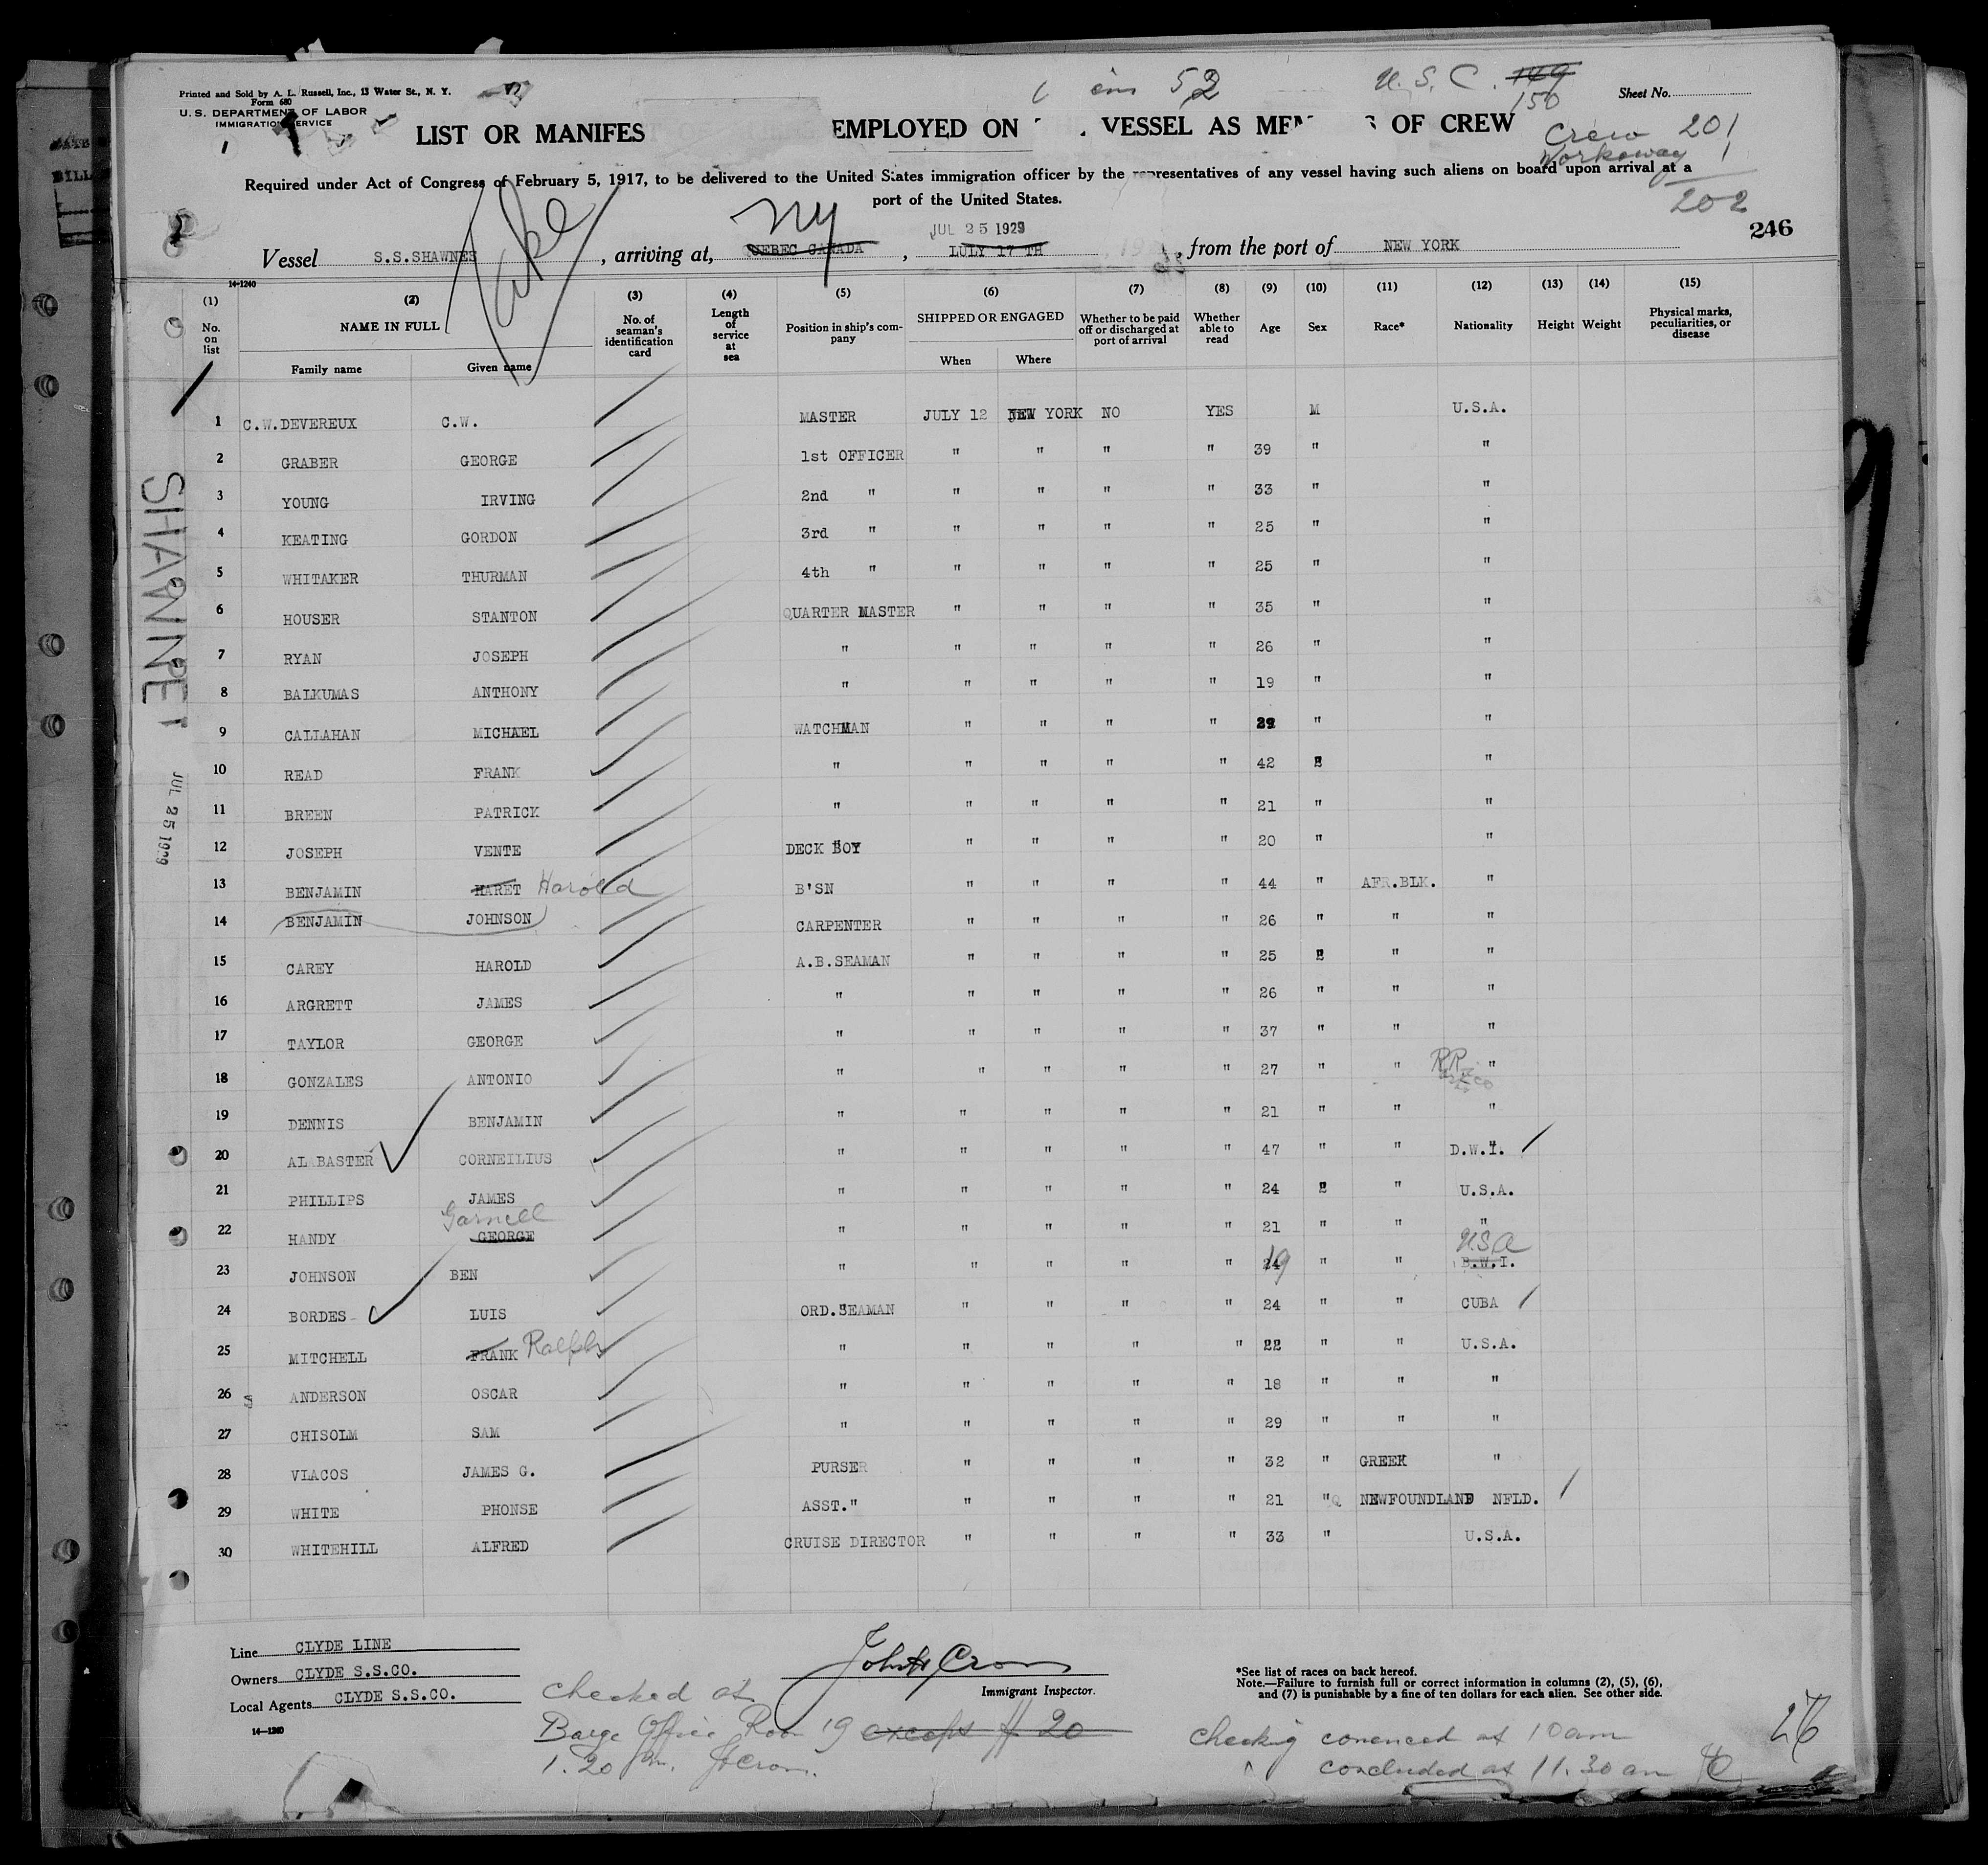 Printed and Sold by A. L. Russell, Inc., 13 Water St., N. Y.
Form 680
U. S. DEPARTMENT OF LABOR
IMMIGRATION SERVICE
52
U. S. C. 149
150
Sheet No.
LIST OR MANIFES EMPLOYED ON VESSEL AS MEM S OF CREW
Crew 201
Workaway 1
202
Required under Act of Congress of February 5, 1917, to be delivered to the United States immigration officer by the representatives of any vessel having such aliens on board upon arrival at a
port of the United States.
246
NY
JUL 25 1929
Vessel S.S.SHAWNEE , arriving at, QEBEC CANADA , LULY 17 TH , from the port of NEW YORK
14-1240
(1) No. on list
(2) NAME IN FULL
Family name Given name
(3) No. of seaman's identification card
(4) Length of service at sea
(5) Position in ship's company
(6) SHIPPED OR ENGAGED
When Where
(7) Whether to be paid off or discharged at port of arrival
(8) Whether able to read
(9) Age
(10) Sex
(11) Race*
(12) Nationality
(13) Height
(14) Weight
(15) Physical marks, peculiarities, or disease
1 C.W.DEVEREUX C.W. MASTER JULY 12 NEW YORK NO YES M U.S.A.
2 GRABER GEORGE 1st OFFICER " " " " 39 " "
3 YOUNG IRVING 2nd " " " " " 33 " "
4 KEATING GORDON 3rd " " " " " 25 " "
5 WHITAKER THURMAN 4th " " " " " 25 " "
6 HOUSER STANTON QUARTER MASTER " " " " 35 " "
7 RYAN JOSEPH " " " " " 26 " "
8 BALKUMAS ANTHONY " " " " " 19 " "
9 CALLAHAN MICHAEL WATCHMAN " " " " " "
10 READ FRANK " " " " " 42 "
11 BREEN PATRICK " " " " " 21 " "
12 JOSEPH VENTE DECK BOY " " " " 20 " "
13 BENJAMIN HARET Harold B'SN " " " " 44 " AFR.BLK. "
14 BENJAMIN JOHNSON CARPENTER " " " " 26 " " "
15 CAREY HAROLD A.B.SEAMAN " " " " 25 " "
16 ARGRETT JAMES " " " " " 26 " " "
17 TAYLOR GEORGE " " " " " 37 " " "
18 GONZALES ANTONIO " " " " " 27 " " "
19 DENNIS BENJAMIN " " " " " 21 " " "
20 ALABASTER CORNEILIUS " " " " " 47 " " D.W.I.
21 PHILLIPS JAMES " " " " " 24 " U.S.A.
22 HANDY GEORGE Garnell " " " " " 21 " " "
23 JOHNSON BEN " " " " " 24 19 " " B.W.I. USA
24 BORDES LUIS ORD.SEAMAN " " " " 24 " " CUBA
25 MITCHELL FRANK Ralph " " " " " 22 " " U.S.A.
26 ANDERSON OSCAR " " " " " 18 " " "
27 CHISOLM SAM " " " " " 29 " " "
28 VLACOS JAMES G. PURSER " " " " 32 " GREEK "
29 WHITE PHONSE ASST." " " " " 21 " NEWFOUNDLAND NFLD.
30 WHITEHILL ALFRED CRUISE DIRECTOR " " " " 33 " U.S.A.
SHAWNEE
JUL 25 1929
Line CLYDE LINE
Owners CLYDE S.S.CO.
Local Agents CLYDE S.S.CO.
14-1240
Immigrant Inspector.
*See list of races on back hereof.
Note.—Failure to furnish full or correct information in columns (2), (5), (6),
and (7) is punishable by a fine of ten dollars for each alien. See other side.
checked at
Barge Office Room 19 except # 20
1.20 Pm. JCron.
checking comenced at 10 am
concluded at 11.30 am
26